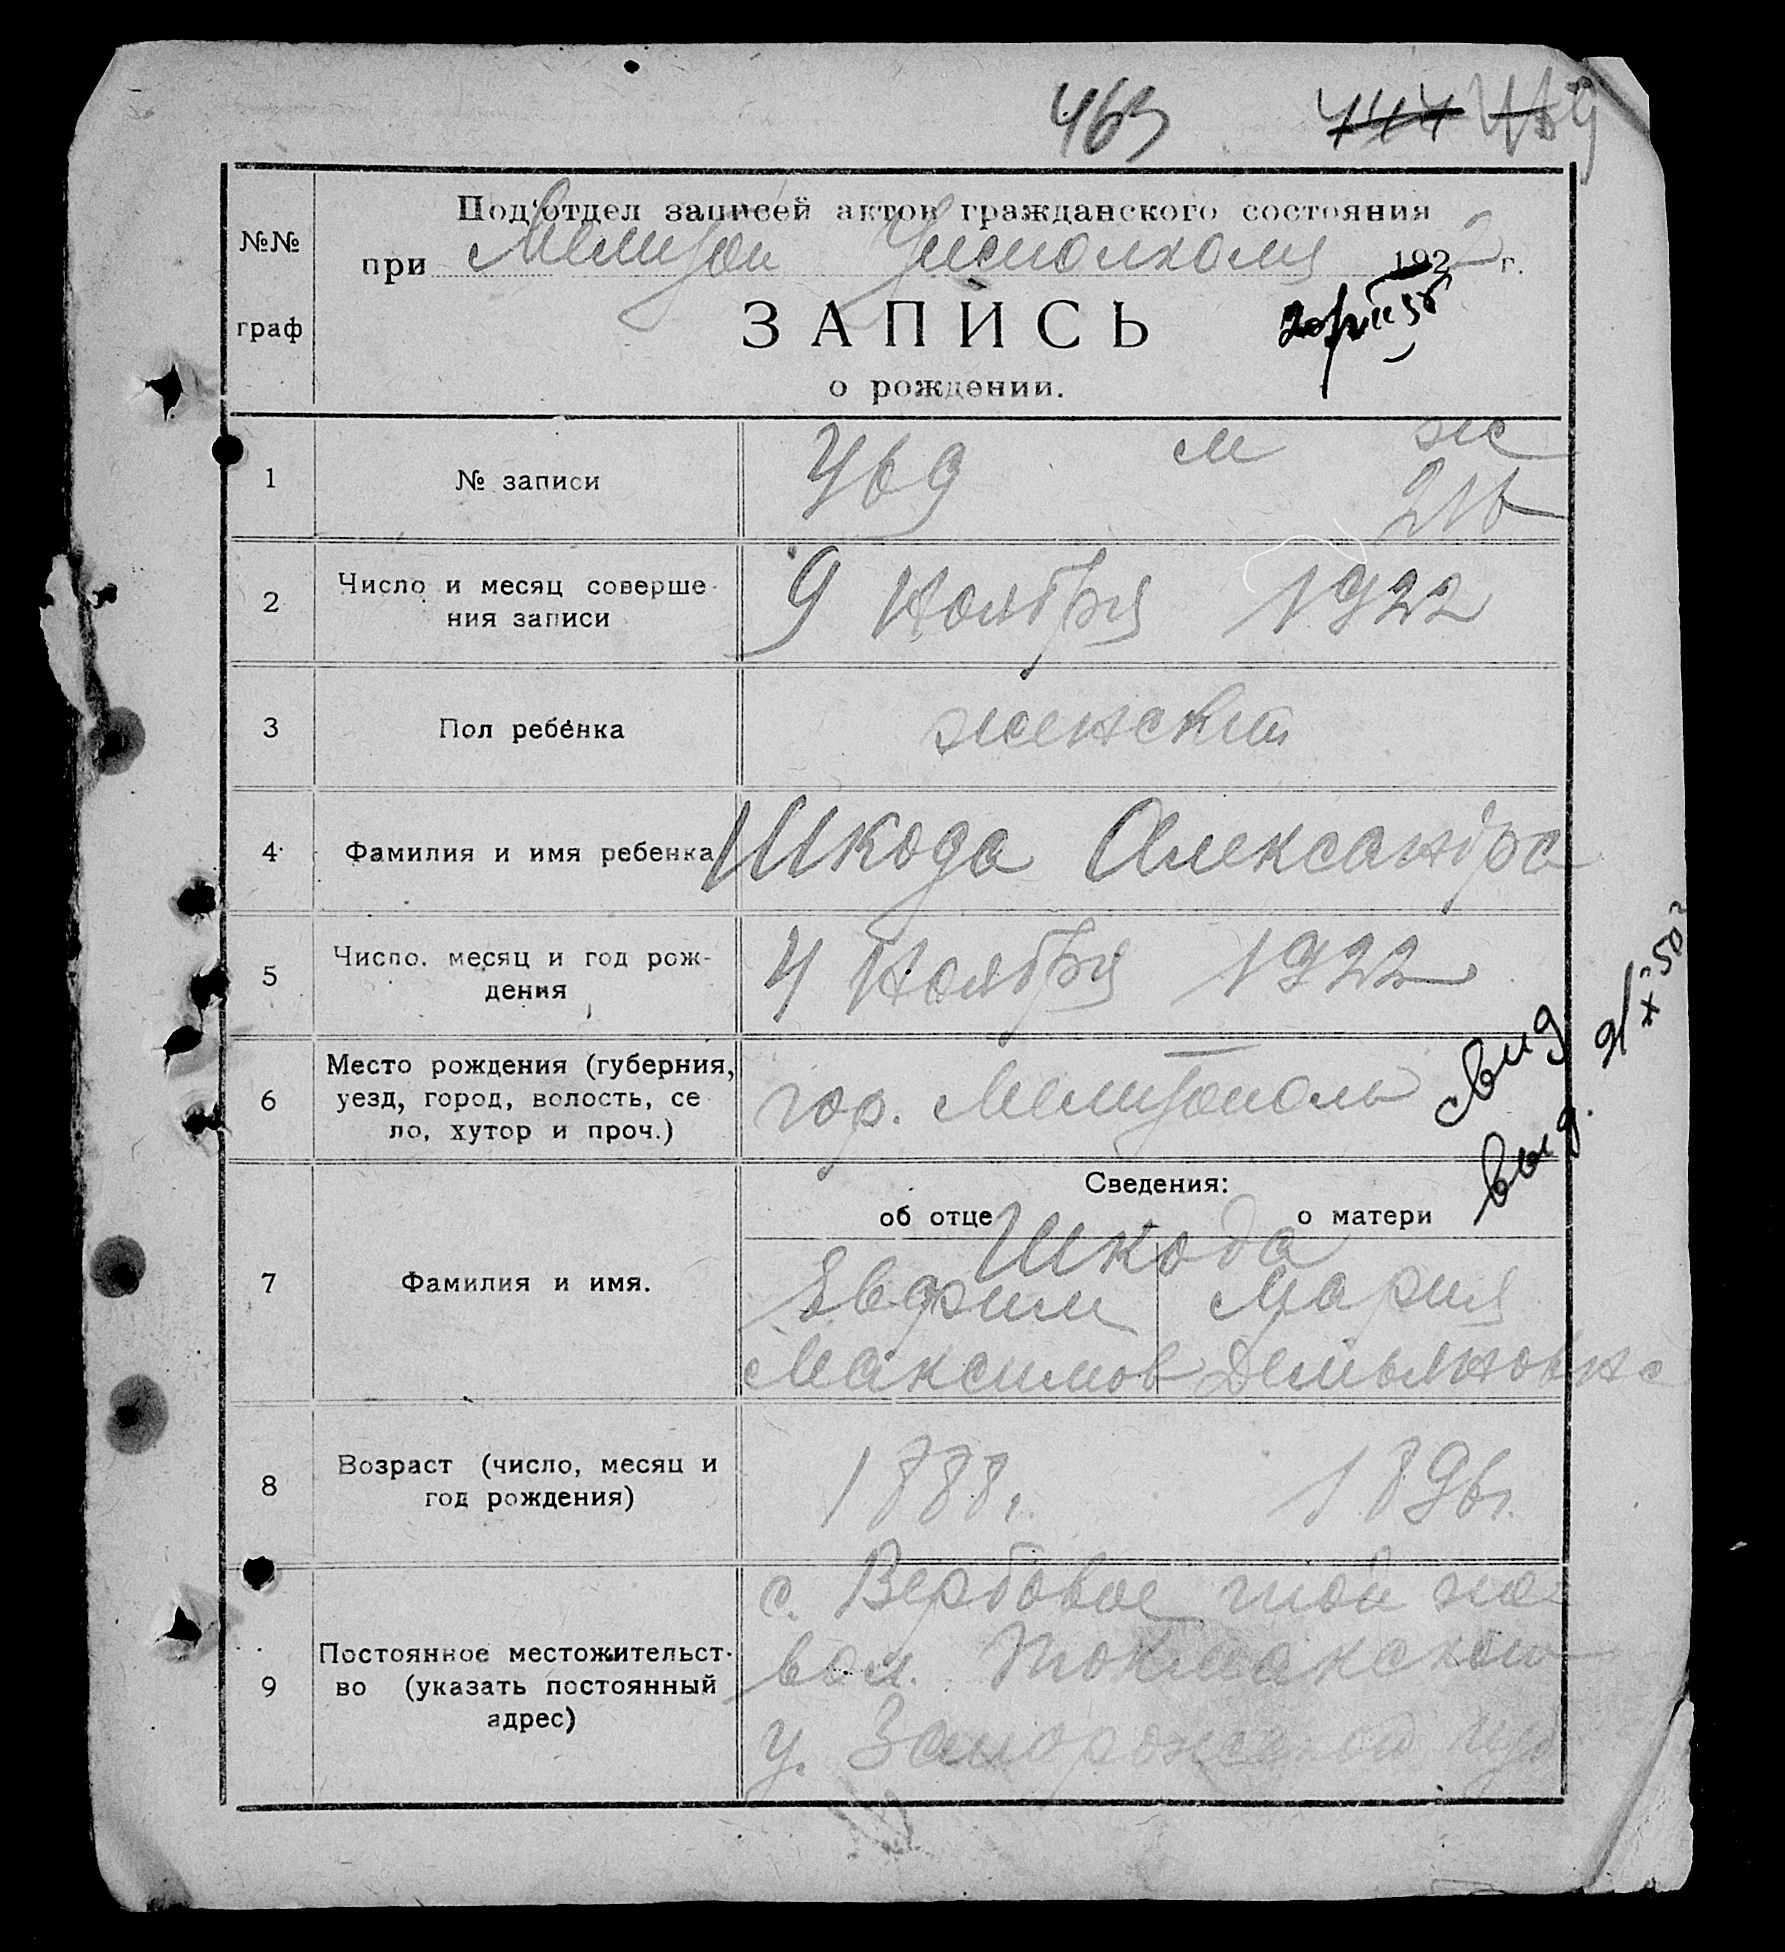 463 444 469
№№ граф
Под'отдел записей актов гражданского состояния
при Мелитоп Уисполкоме 1922 г.
ЗАПИСЬ
о рождении.
1 № записи 469 м ж
216
2 Число и месяц соверше-
ния записи 9 Ноября 1922
3 Пол ребенка женский
4 Фамилия и имя ребенка Шкода Александра
5 Число, месяц и год рож-
дения 4 Ноября 1922
6 Место рождения (губерния,
уезд, город, волость, се
ло, хутор и проч.) гор. Мелитополь
свид
выд. 9/X-50г
Сведения:
об отце о матери
Шкода
7 Фамилия и имя. Евфим Мария
Максимов Демьяновна
8 Возраст (число, месяц и
год рождения) 1888г. 1896г.
9 Постоянное местожительст-
во (указать постоянный
адрес)
с. Вербовое той же
вол. Токмакского
у. Запорожской губ